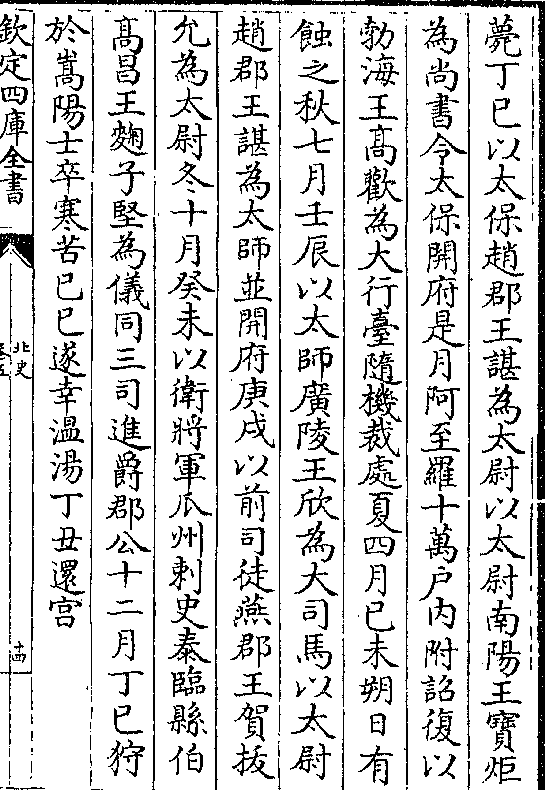 薨丁巳以太保趙郡王諶為太尉以太尉南陽王寶炬
為尚書令太保開府是月阿至羅十萬户内附詔復以
勃海王高歡為大行臺隨機裁處夏四月己未朔日有
蝕之秋七月壬辰以太師廣陵王欣為大司馬以太尉
趙郡王諶為太師並開府庚戌以前司徒燕郡王賀拔
允為太尉冬十月癸未以衛將軍瓜州刺史泰臨縣伯
髙昌王麴子堅為儀同三司進爵郡公十二月丁巳狩
於嵩陽士卒寒苦己巳遂幸温湯丁丑還宫
欽定四庫全書
北史
卷五